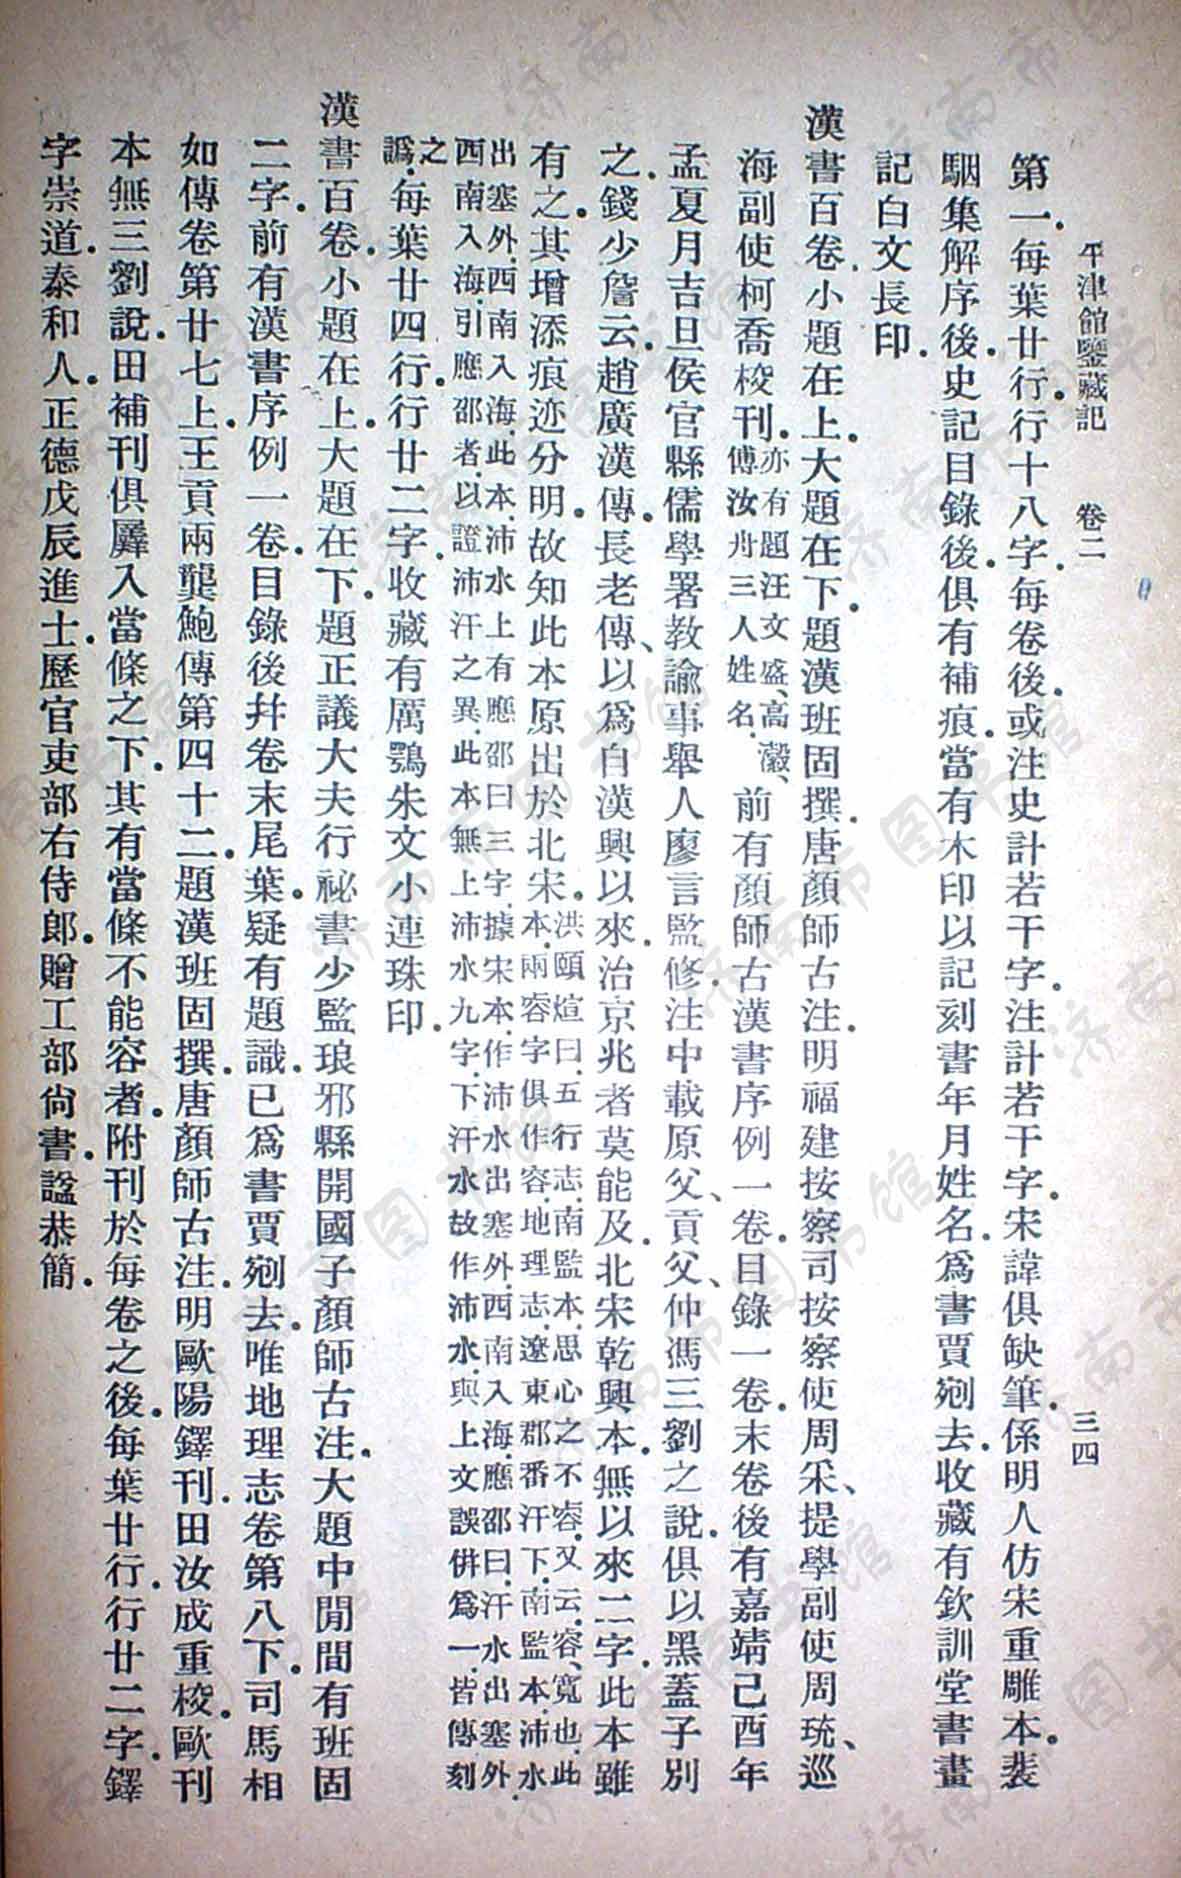 平津館鑒藏記　卷二　三四
第一．每葉廿行．行十八字．每卷後．或注史計若干字．注計若干字．宋諱俱缺筆．係明人仿宋重雕本．裴
駰集解序後．史記目錄後．俱有補痕．當有木印以記刻書年月姓名．為書賈剜去．收藏有欽訓堂書畫
記白文長印．
漢書百卷．小題在上．大題在下．題漢班固撰．唐顏師古注．明福建按察司按察使周采、提學副使周珫、巡
海副使柯喬校刊．亦有題汪文盛、高瀫、傅汝舟三人姓名．前有顏師古漢書序例一卷．目錄一卷．末卷後有嘉靖己酉年
孟夏月吉旦侯官縣儒學署教諭事舉人廖言監修．注中載原父、貢父、仲馮三劉之說．俱以黑蓋子別
之．錢少詹云．趙廣漢傳．長老傳、以為自漢興以來．治京兆者莫能及．北宋乾興本．無以來二字．此本雖
有之．其增添痕迹分明．故知此本原出於北宋．洪頤煊曰．五行志．南監本．思心之不容．又云．容、寬也．此
本．兩容字俱作容．地理志．遼東郡番汗下．南監本．沛水
出塞外．西南入海．此本．沛水上有應邵曰三字．據宋本．作沛水出塞外．西南入海．應邵曰．汗水出塞外．
西南入海．引應邵者．以證沛汗之異．此本無上沛水九字．下汗水故作沛水．與上文誤併為一．皆傳刻
之譌．每葉廿四行．行廿二字．收藏有厲鶚朱文小連珠印．
漢書百卷．小題在上．大題在下．題正議大夫行祕書少監琅邪縣開國子顏師古注．大題中閒間有班固
二字．前有漢書序例一卷．目錄後幷卷末尾葉．疑有題識．已為書賈剜去．唯地理志卷第八下．司馬相
如傳卷第廿七上．王貢兩龔鮑傳第四十二．題漢班固撰．唐顏師古注．明歐陽鐸刊．田汝成重校．歐刊
本無三劉說．田補刊俱羼入當條之下．其有當條不能容者．附刊於每卷之後．每葉廿行．行廿二字．鐸
字崇道．泰和人．正德戊辰進士．歷官吏部右侍郎．贈工部尚書．諡恭簡．